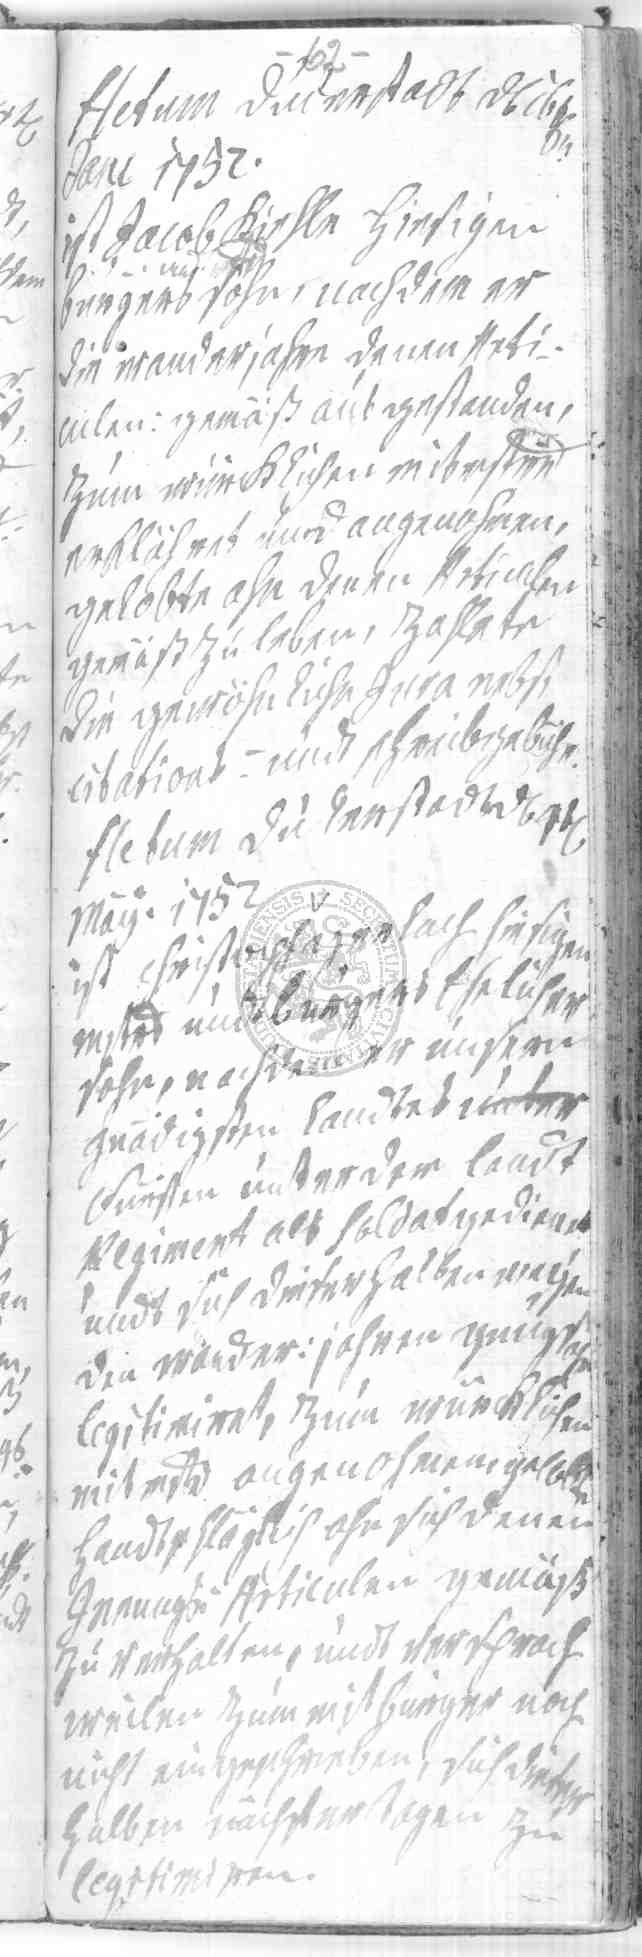 - 102 -
Actum Duderstadt d
Juni 1752.
ist Jacob hiesigen
bürgers sohn, nachdem er
die wanderjahre denen Arti-
culen: gemäß aus gestanden,
zum würcklichen mitmster
erklähret und angenohmen,
gelobte ahn denen Articulen
gemäß zu leben, zahlete
die gewöhnliche Jura nebst
citations- undt schreibgebühr.
Actum Duderstadt d
May. 1752
ist Christoph hiesigen
mstrs undt bürgers Ehelicher
sohn, nachdem er unsern
gnädigsten landtes
Fürsten unter dem landt
Regiment als soldat gedienet
undt sich dieserhalben wegen
den wander: jahren gnugsahm
legitimiret, zum würcklichen
mitmstr angenohmen, gelobte
handtschläglich ahn sich denen
Innungs Articulen gemäß
zu verhalten, undt versprach
weilen zum mitbürger noch
nicht eingeschrieben, sich dieser
halben nächster tagen zu
legitimiren.